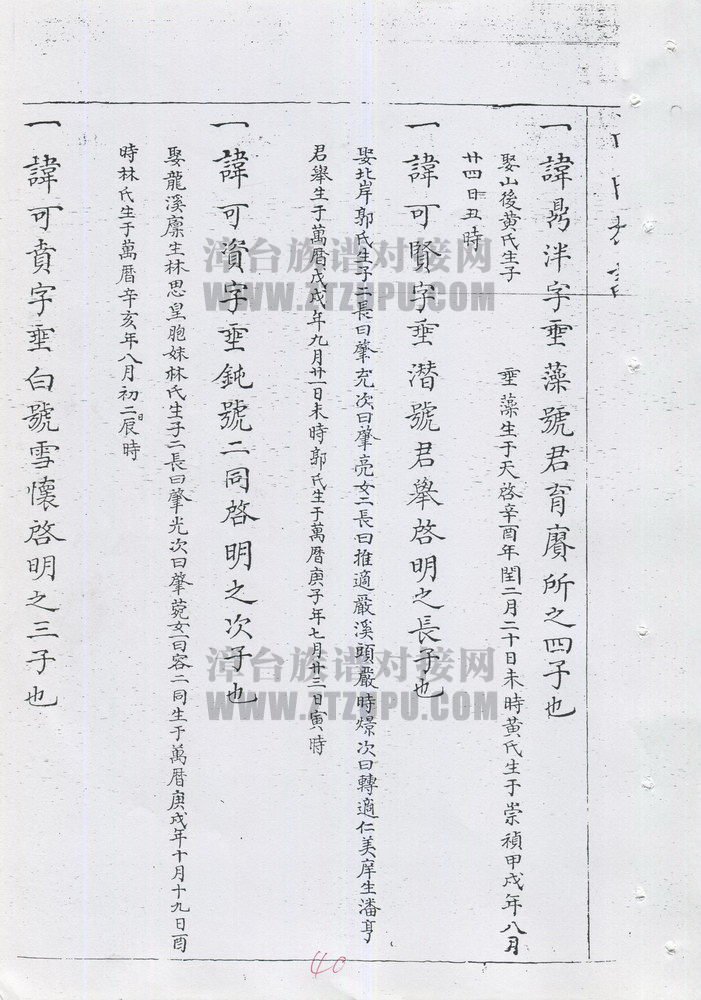 一諱鼎泮字垔藻號君育賡所之四子也
娶山後黃氏生子　垔藻生于天啓辛酉年閏二月二十日未時黃氏生于崇禎甲戌年八月
廿四日丑時
一諱可賢字垔潛號君舉啓明之長子也
娶北岸郭氏生子二長曰肇充次曰肇亮女二長曰推適嚴溪頭嚴時燝次曰轉適仁美庠生潘亨
君舉生于萬曆戊戌年九月廿一日未時郭氏生于萬曆庚子年七月廿三日寅時
一諱可資字垔鈍號二同啓明之次子也
娶龍溪廩生林思皇胞妹林氏生子二長曰肇光次曰肇菀女一曰容二同生于萬曆庚戌年十月十九日酉
時林氏生于萬曆辛亥年八月初二日辰時
一諱可賁字垔白號雪懷啓明之三子也
漳台族谱对接网
WWW.ZTZUPU.COM
漳台族谱对接网
WWW.ZTZUPU.COM
40